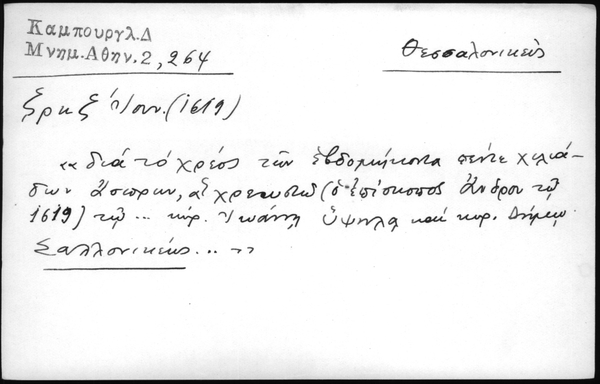 Καμπουργλ.Δ
Μνημ.Αθην.2, 264
Θεσσαλονικεὺς
ξρκξ Ἰουν. (1619)
«διὰ τὸ χρέος τῶν ἑβδομήκοντα πέντε χιλιά-
δων ἄσπρων, χρεωστεῖ (ὁ ἐπίσκοπος Ἄνδρου τῷ
1619) τῷ ... κὺρ. Ἰωάννῃ Ὑψηλᾷ καὶ κὺρ.
Σαλλονικεὺς... »